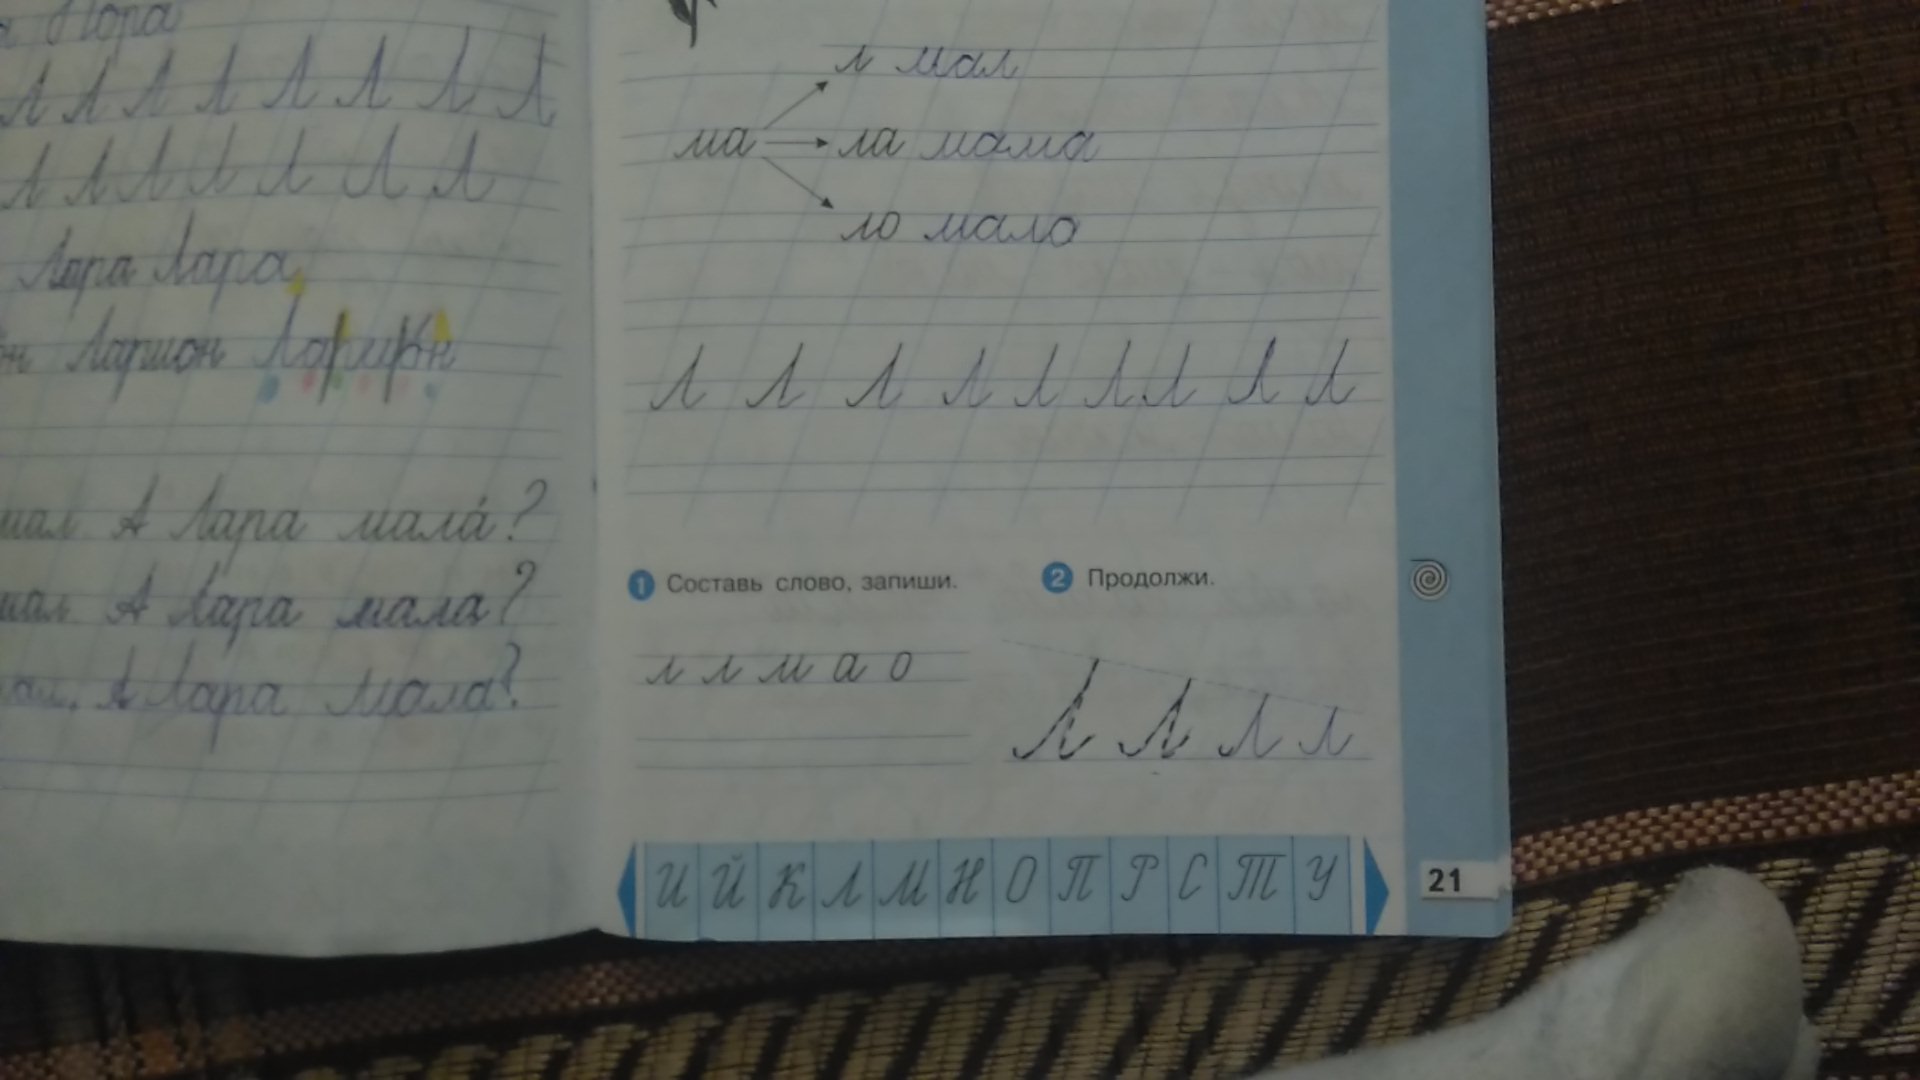 Нора
Л Л Л Л Л Л Л Л
Л Л Л Л Л Л Л
Лара Лара
Ларион Ларион
мал. А Лара мала́?
мал. А Лара мала?
мал. А Лара мала?
л мал
ма ла мама
ло мало
Л Л Л Л Л Л Л Л Л
1 Составь слово, запиши.
2 Продолжи.
л л м а о
Л Л Л л
И Й К Л М Н О П Р С Т У
21